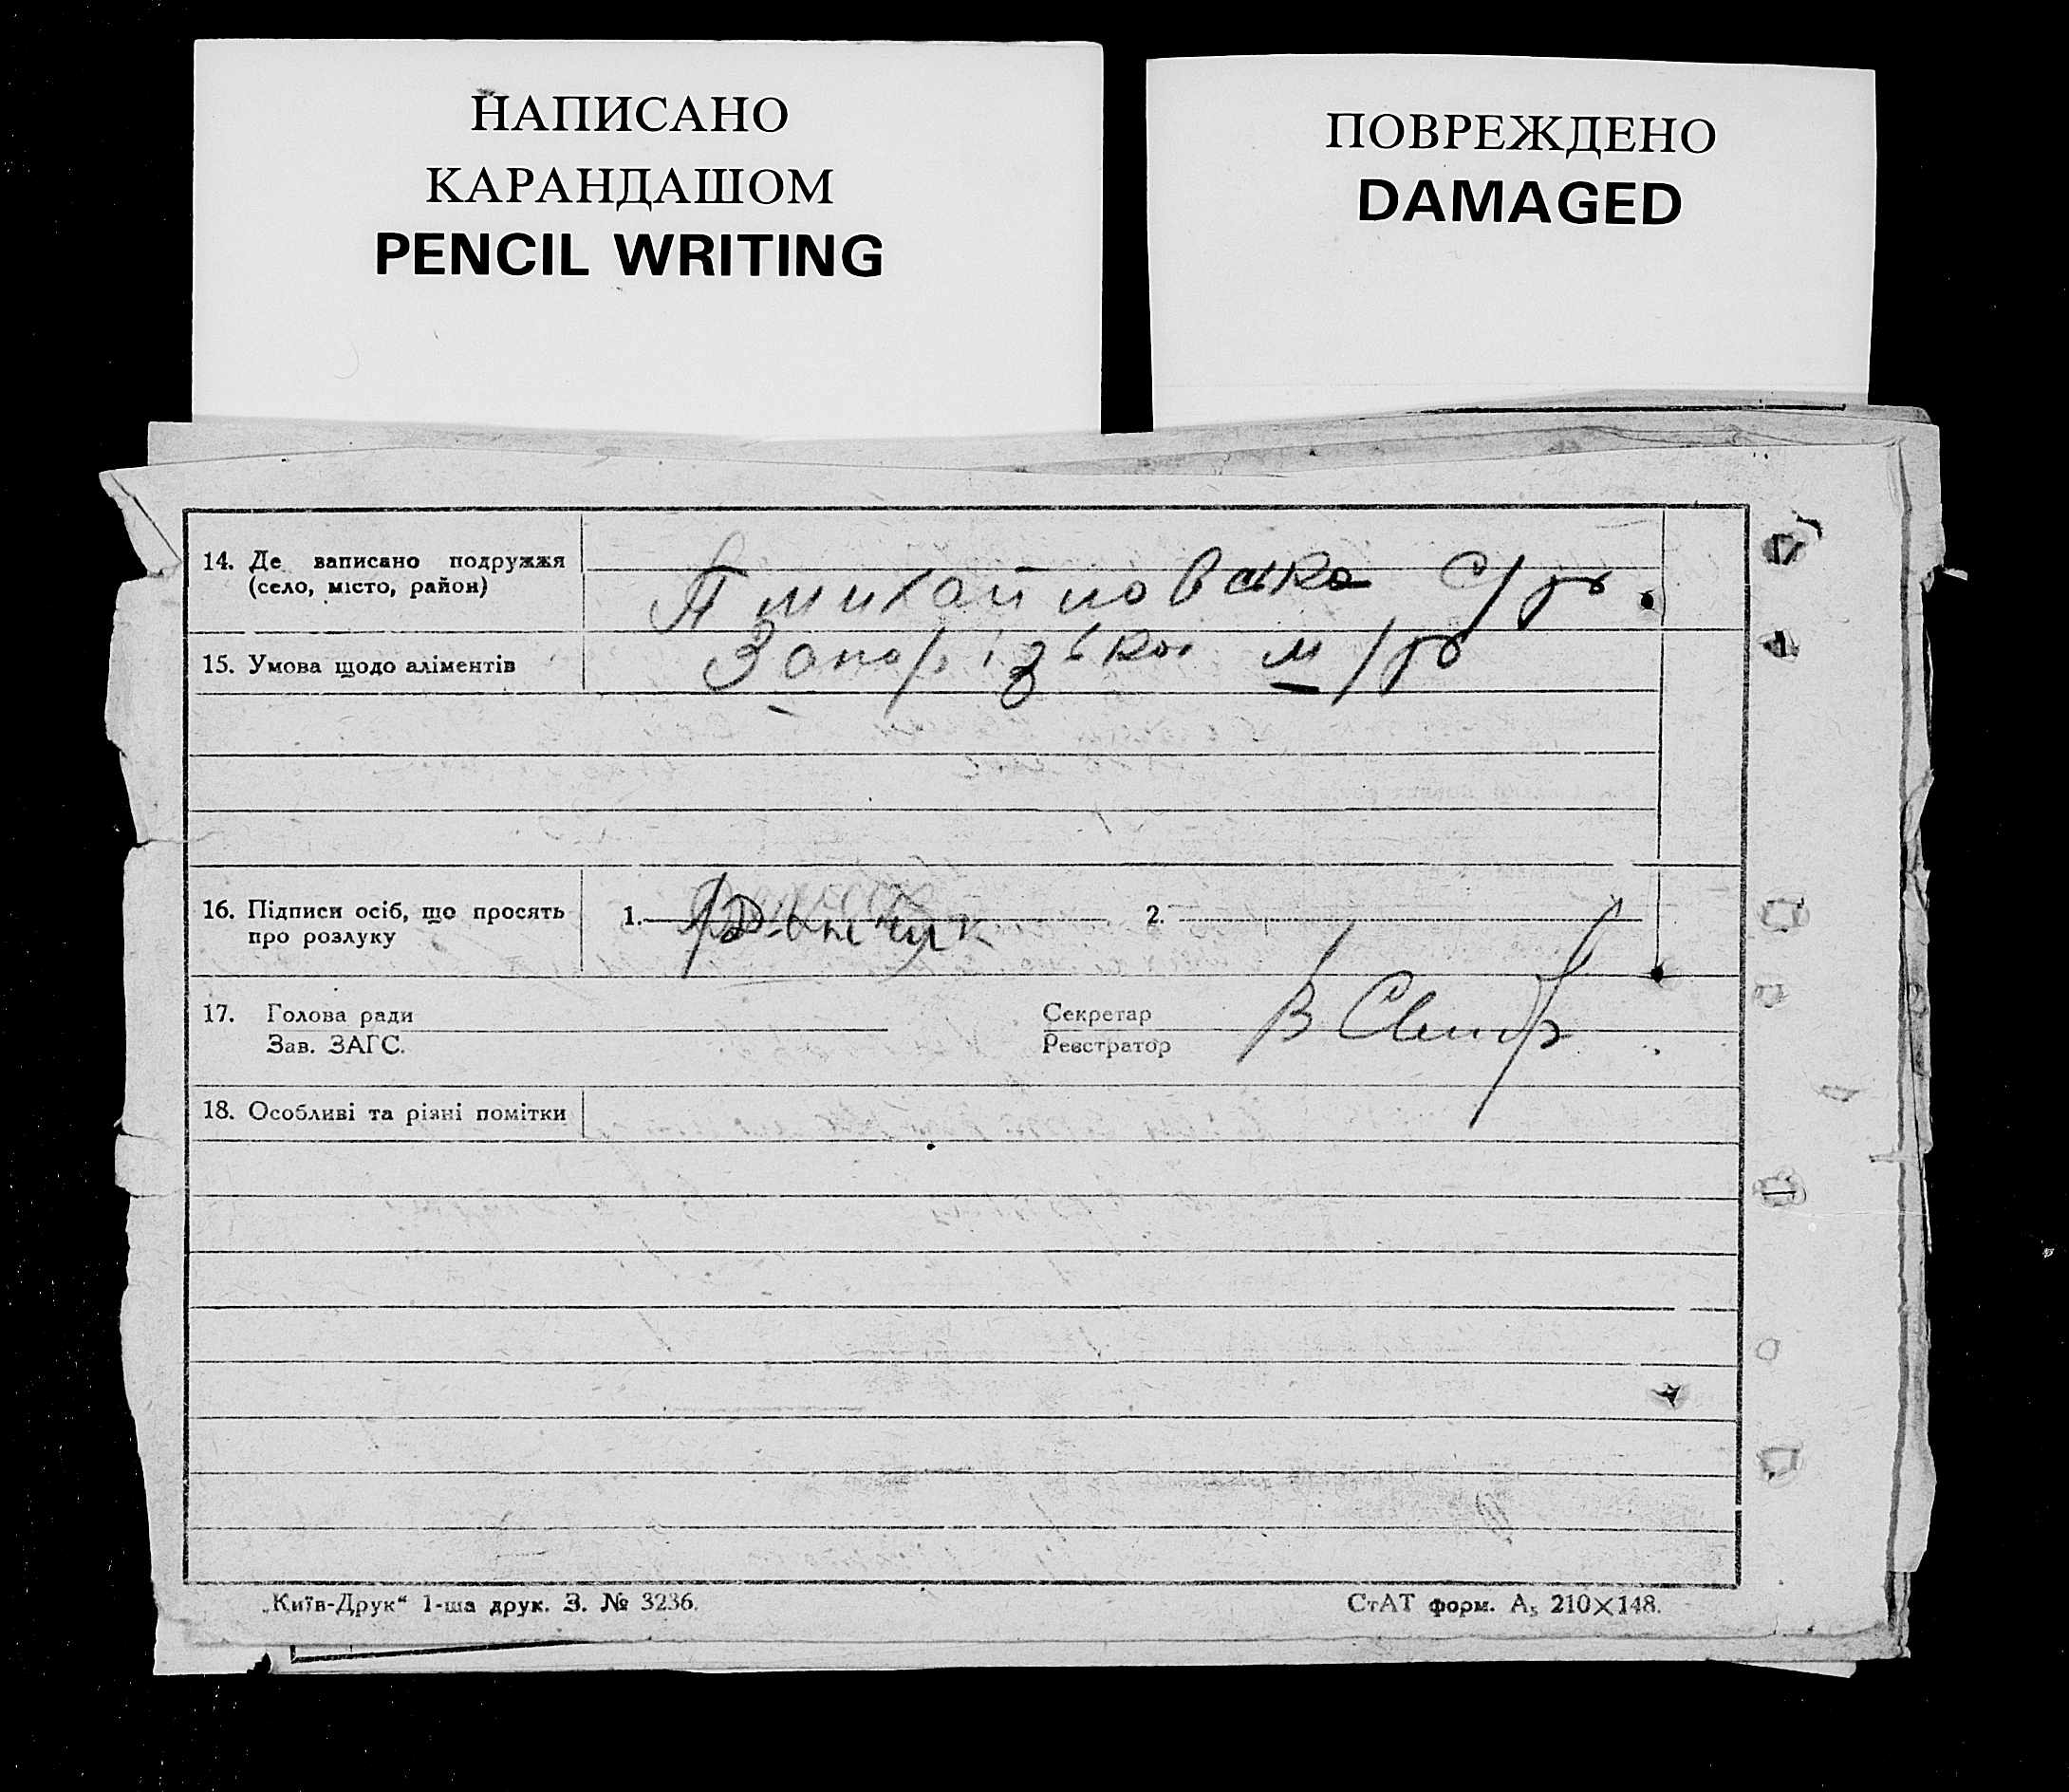 НАПИСАНО
КАРАНДАШОМ
PENCIL WRITING
ПОВРЕЖДЕНО
DAMAGED
14. Де записано подружжя
(село, місто, район)
Михайловська С/р
15. Умова щодо аліментів
Запорізької м/р
16. Підписи осіб, що просять
про розлуку
1.
2.
17. Голова ради
Зав. ЗАГС.
Секретар
Реєстратор
18. Особливі та різні помітки
„Київ-Друк“ 1-ша друк. З. № 3236.
СтАТ форм. А₅ 210×148.